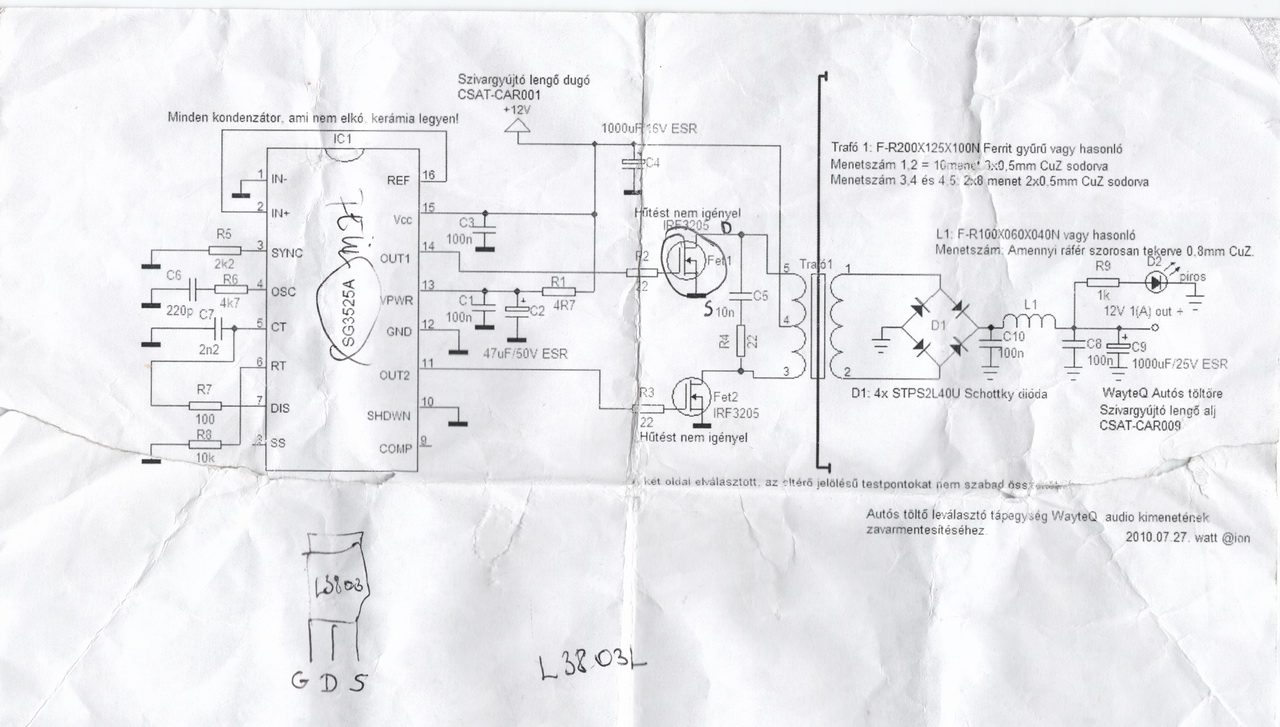 Szivargyújtó lengő dugó
CSAT-CAR001
+12V
Minden kondenzátor, ami nem elkó, kerámia legyen!
IC1
1000uF/16V ESR
C4
Trafó 1: F-R200X125X100N Ferrit gyűrű vagy hasonló
Menetszám 1,2 = 10menet 3x0,5mm CuZ sodorva
Menetszám 3,4 és 4,5: 2x8 menet 2x0,5mm CuZ sodorva
1 IN-
2 IN+
3 SYNC
4 OSC
5 CT
6 RT
7 DIS
SS
REF 16
Vcc 15
OUT1 14
VPWR 13
GND 12
OUT2 11
SHDWN 10
COMP 9
SG3525A
R5
2k2
C6
220p
R6
4k7
C7
2n2
R7
100
R8
10k
C3
100n
C1
100n
C2
47uF/50V ESR
R1
4R7
Hűtést nem igényel
IRF3205
D
Fet1
S
R2
22
C5
10n
R4
22
R3
22
Fet2
IRF3205
Hűtést nem igényel
Trafó1
5
4
3
1
2
L1: F-R100X060X040N vagy hasonló
Menetszám: Amennyi ráfér szorosan tekerve 0.8mm CuZ.
R9
1k
D2
piros
12V 1(A) out +
D1
L1
C10
100n
C8
100n
C9
1000uF/25V ESR
D1: 4x STPS2L40U Schottky dióda
WayteQ Autós töltőre
Szivargyújtó lengő alj
CSAT-CAR009
két oldal elválasztott, az eltérő jelölésű testpontokat nem szabad
Autós töltő leválasztó tápegység WayteQ audio kimenetének
zavarmentesítéséhez.
2010.07.27. watt @ion
L3803
G D S
L3803L